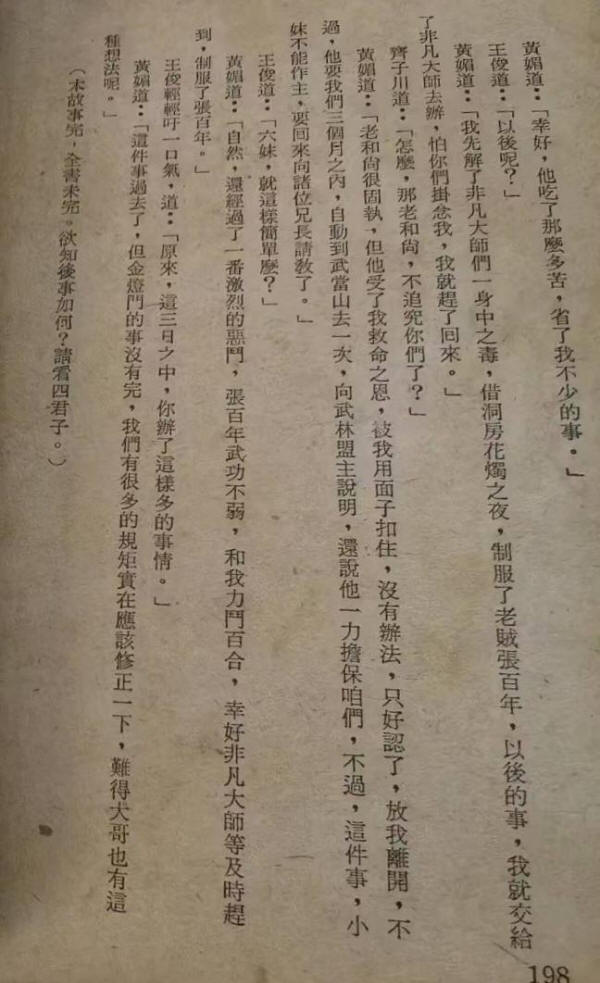 黃媚道：「幸好，他吃了那麼多苦，省了我不少的事。」
王俊道：「以後呢？」
黃媚道：「我先解了非凡大師們一身中之毒，借洞房花燭之夜，制服了老賊張百年，以後的事，我就交給
了非凡大師去辦，怕你們掛念我，我就趕了回來。」
齊子川道：「怎麼，那老和尙，不追究你們了？」
黃媚道：「老和尙很固執，但他受了我救命之恩，被我用面子扣住，沒有辦法，只好認了，放我離開，不
過，他要我們三個月之內，自動到武當山去一次，向武林盟主說明，還說他一力擔保咱們，不過，這件事，小
妹不能作主，要回來向諸位兄長請敎了。」
王俊道：「六妹，就這樣簡單麼？」
黃媚道：「自然，還經過了一番激烈的惡鬥，張百年武功不弱，和我力鬥百合，幸好非凡大師等及時趕
到，制服了張百年。」
王俊輕輕吁一口氣，道：「原來，這三日之中，你辦了這樣多的事情。」
黃媚道：「這件事過去了，但金燈門的事沒有完，我們有很多的規矩實在應該修正一下，難得大哥也有這
種想法呢。」
（本故事完，全書未完。欲知後事如何？請看四君子。）
198